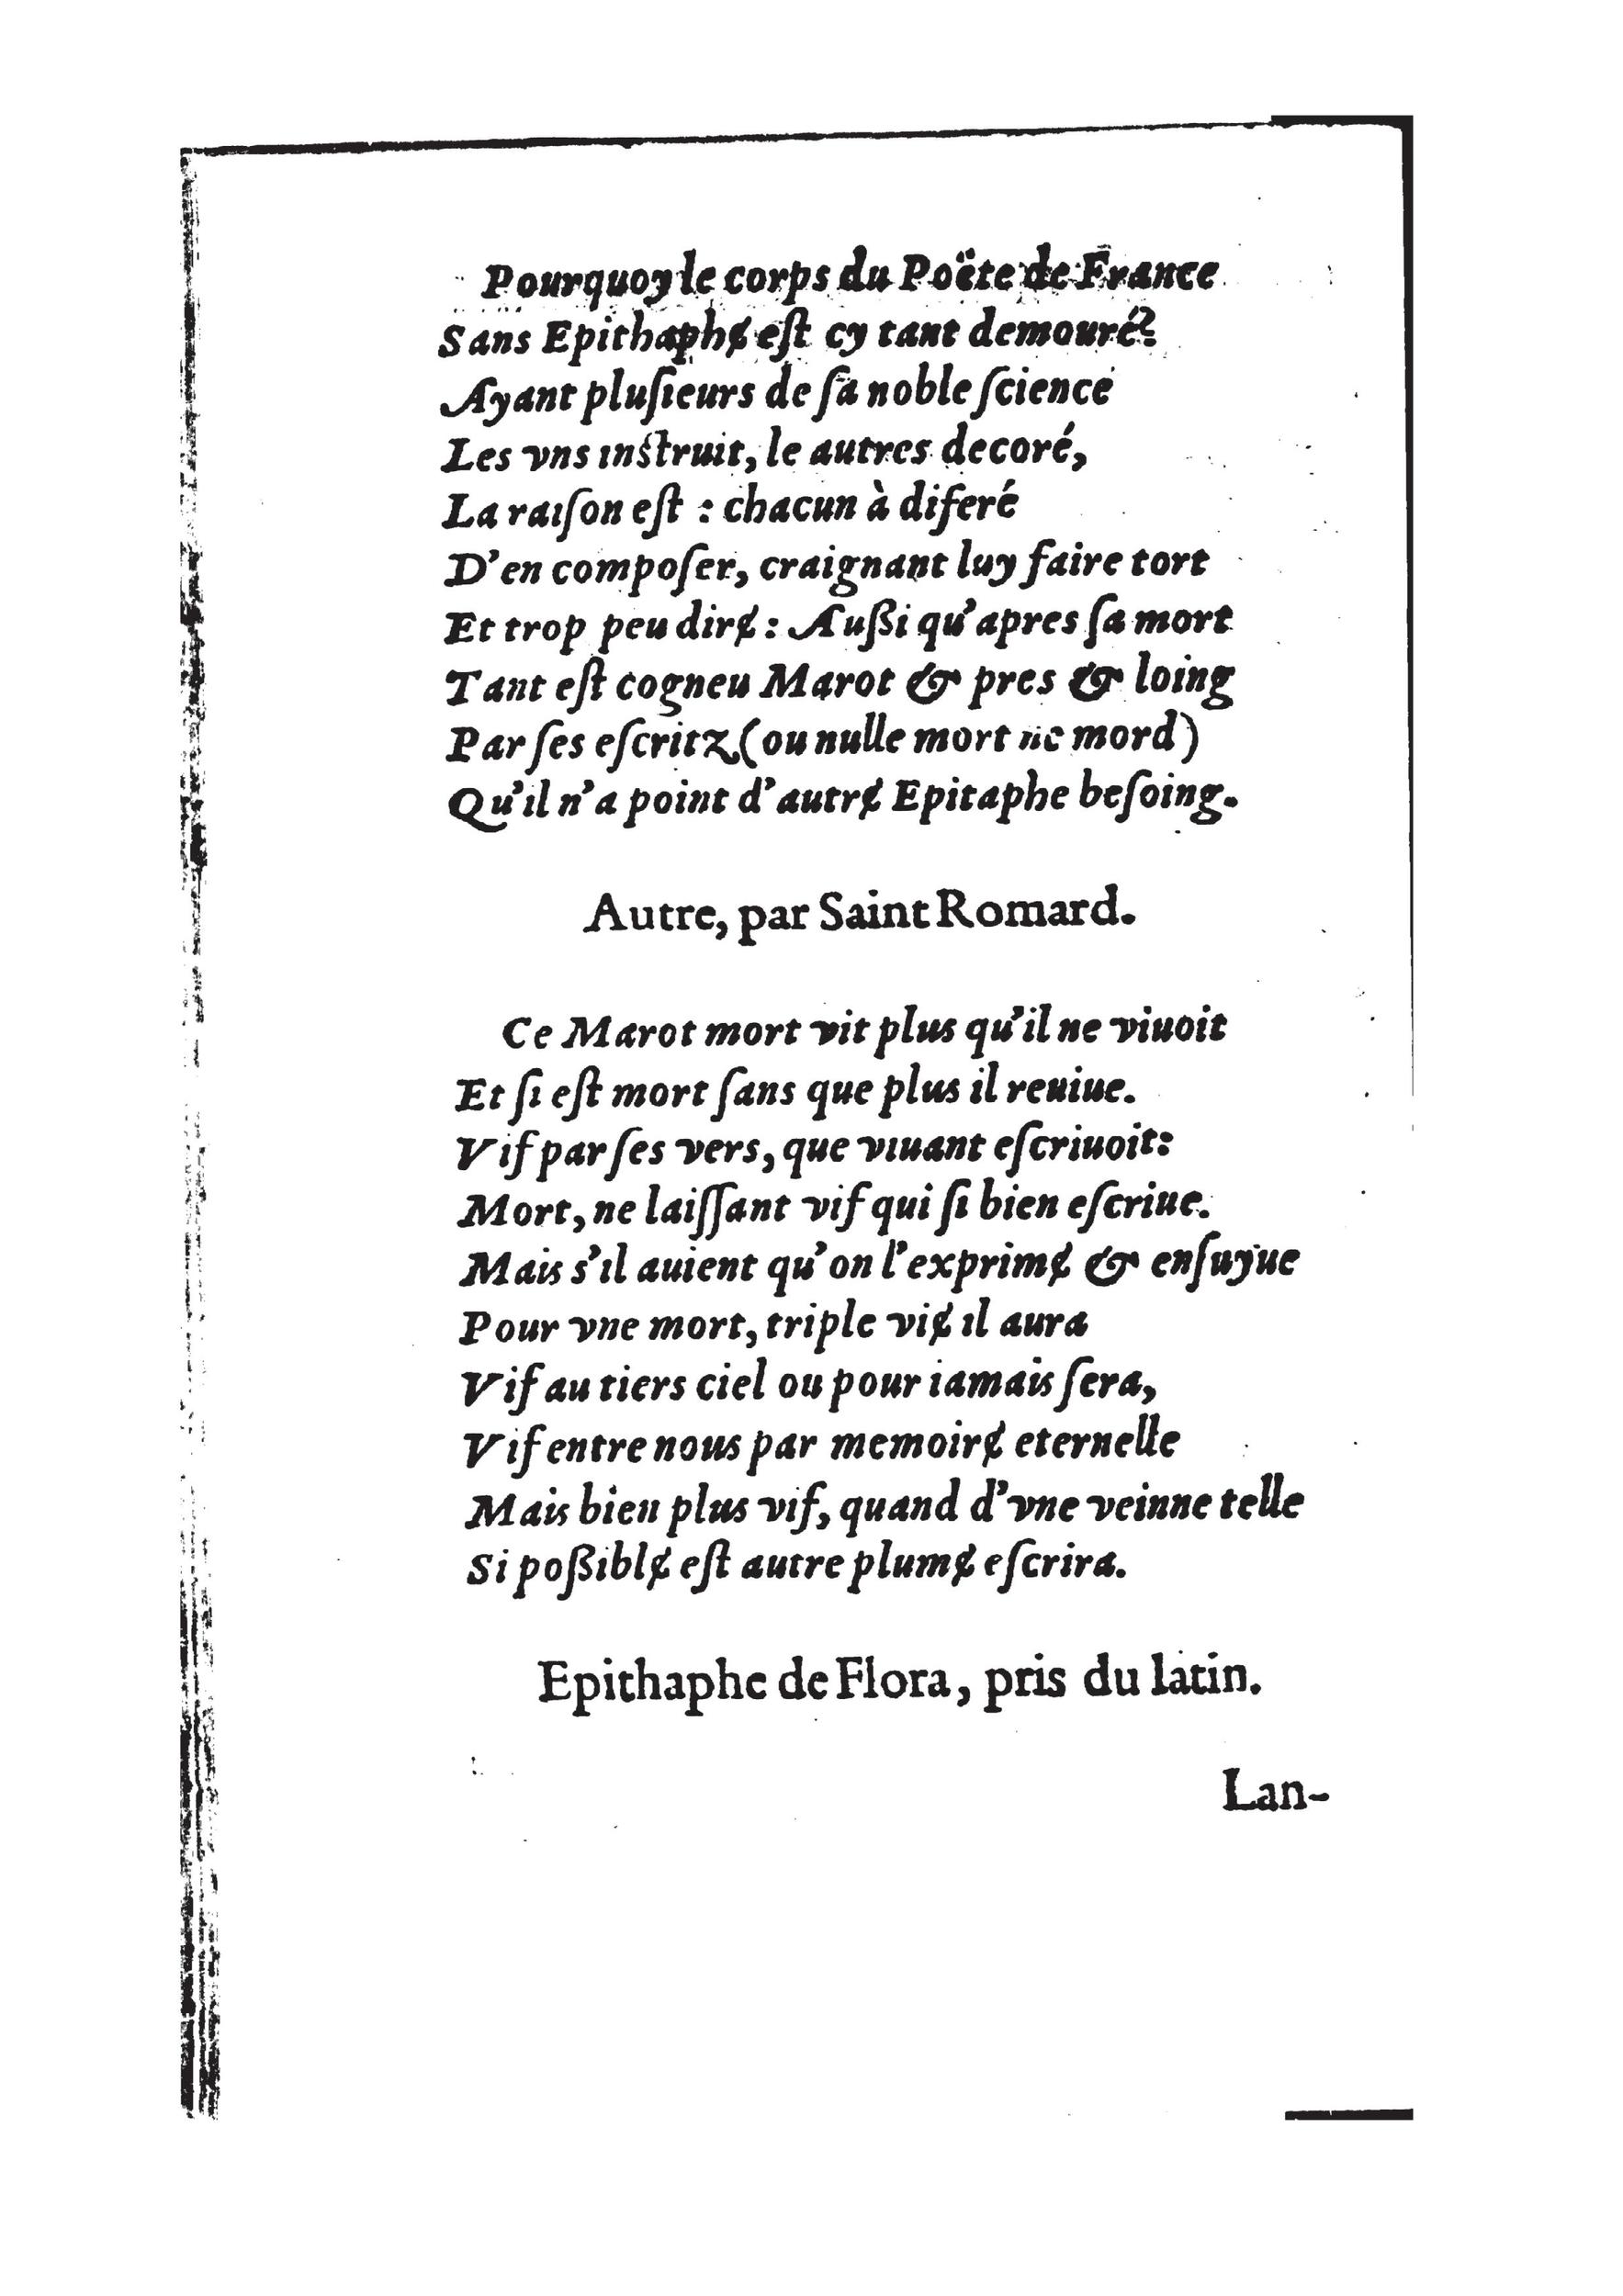 Pourquoy le corps du Poëte de France
Sans Epithaphɇ eſt cy tant demouré?
Ayant pluſieurs de ſa noble ſcience
Les vns inſtruit, le autres decoré,
La raiſon eſt : chacun à diferé
D'en compoſer, craignant luy faire tort
Et trop peu dirɇ : Außi qu'apres ſa mort
Tant eſt cogneu Marot & pres & loing
Par ſes eſcritz (ou nulle mort ne mord)
Qu'il n'a point d'autrɇ Epitaphe beſoing.
Autre, par Saint Romard.
Ce Marot mort vit plus qu'il ne viuoit
Et ſi eſt mort ſans que plus il reuiue.
Vif par ſes vers, que viuant eſcriuoit:
Mort, ne laiſſant vif qui ſi bien eſcriue.
Mais s'il auient qu'on l'exprimɇ & enſuyue
Pour vne mort, triple viɇ il aura
Vif au tiers ciel ou pour iamais ſera,
Vif entre nous par memoirɇ eternelle
Mais bien plus vif, quand d'vne veinne telle
Si poßiblɇ eſt autre plumɇ eſcrira.
Epithaphe de Flora, pris du latin.
Lan-